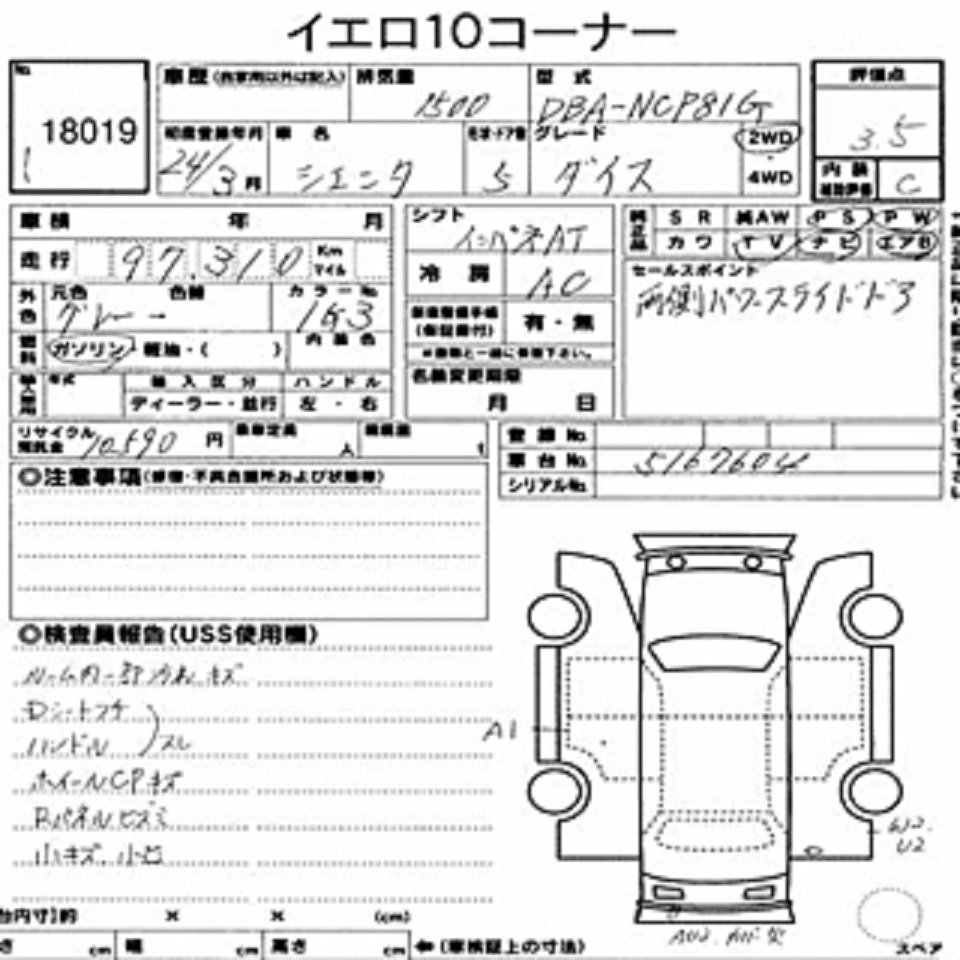 イエロ10コーナー
No. 18019
車歴 (自家用以外は記入) 排気量 1500 型式 DBA-NCP81G 評価点 3.5
初度登録年月 24/3月 車名 シエンタ 形状・ドア数 5 グレード ダイス 2WD 4WD 内装 補助評価 C
車検 年 月 シフト インパネAT 純正品 SR 純AW PS PW
カワ TV ナビ エアB
走行 97,310 Km マイル 冷房 AC セールスポイント
両側パワースライドドア
外色 元色 グレー 色替 カラーNo. 1G3
燃料 ガソリン・軽油・( ) 内装色
新車整備手帳 (保証書付) 有・無
※書類と一緒に保管下さい。
輸入車用 年式 輸入区分 ハンドル
ディーラー・並行 左・右
名義変更期限
月 日
リサイクル 預託金 10590 円 乗車定員 人 積載量 t
登録No.
車台No. 5167604
シリアルNo.
◎注意事項(修復・不具合箇所および状態等)
◎検査員報告(USS使用欄)
ルーム内一部汚れ キズ
Dシートコゲ
ハンドル スレ
ホイールCPキズ
Rパネルヒズミ
小キズ、小凹
A1
U2
台内寸)約 × × (cm)
さ cm 幅 cm 高さ cm ⇐(車検証上の寸法)
スペア